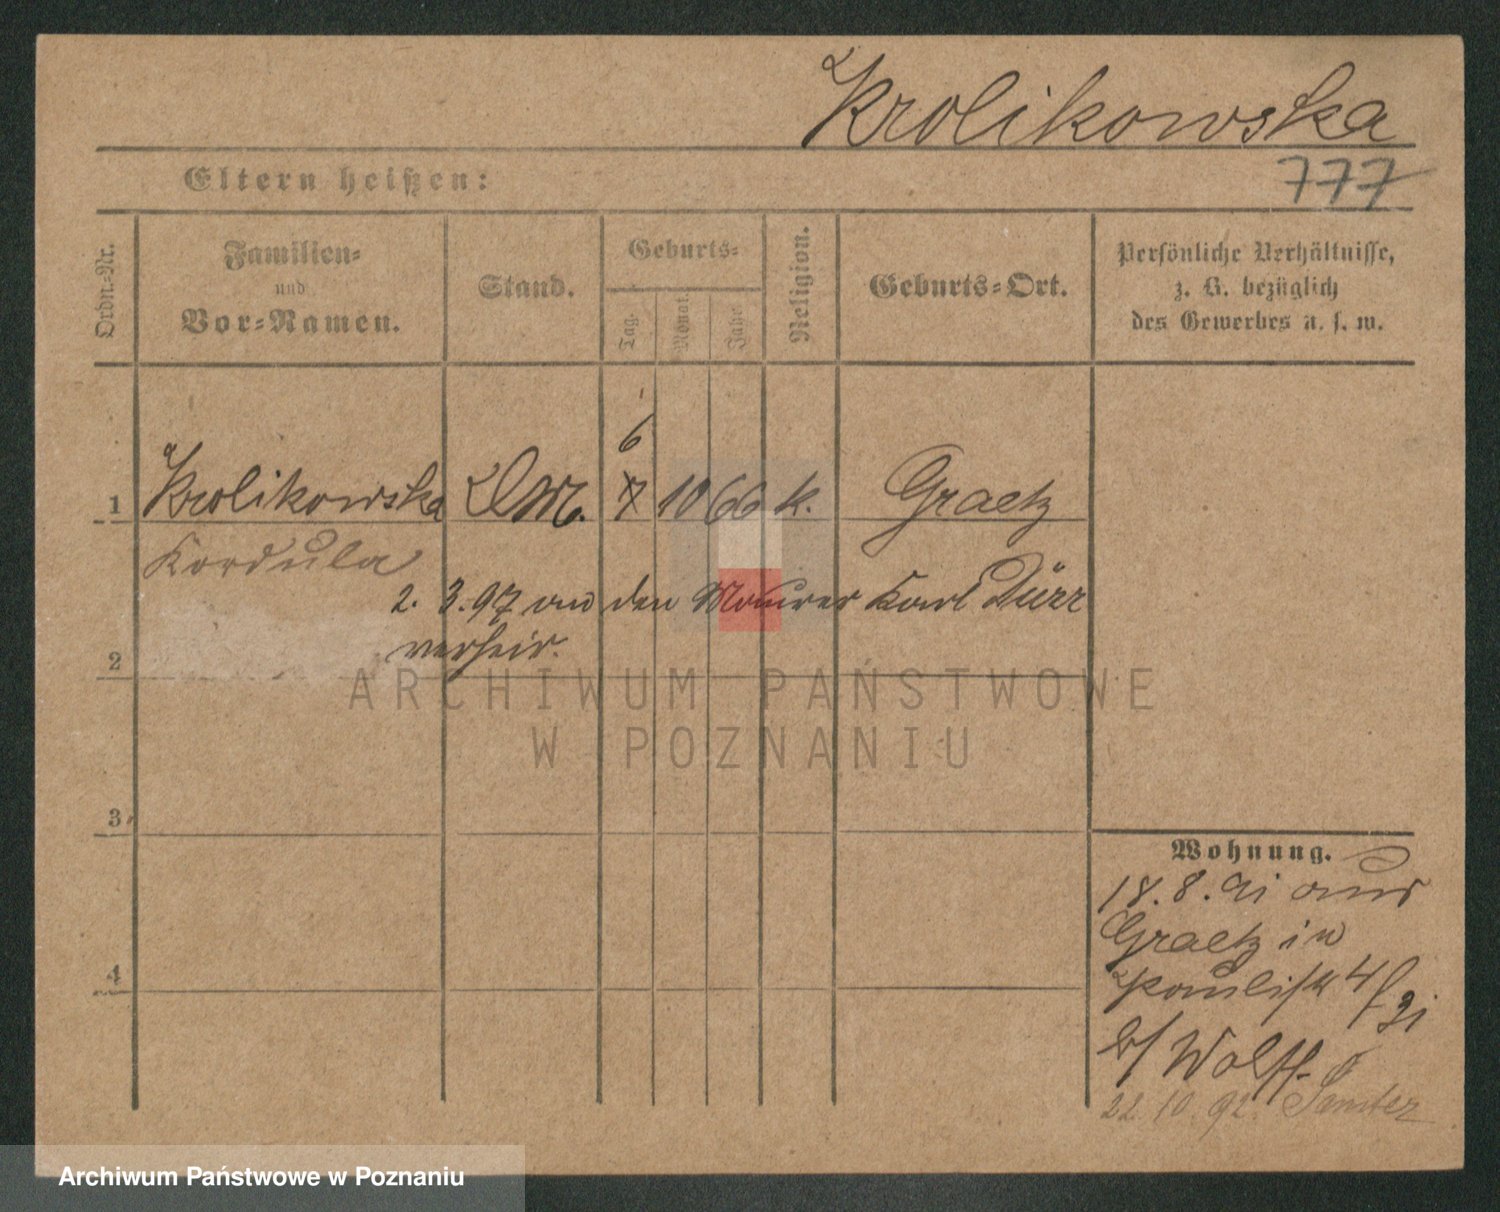 Krolikowska
777
Eltern heißen:
Ordn.-Nr.
Familien-
und
Vor-Namen.
Stand.
Geburts-
Tag.
Monat.
Jahr.
Religion.
Geburts-Ort.
Persönliche Verhältnisse,
z. B. bezüglich
des Gewerbes u. s. w.
6
1 Krolikowska DM. 7 10 66 k. Graetz
Kordula
2. 3. 97 an den Maurer Karl Dürr
verheir.
2
ARCHIWUM PAŃSTWOWE
W POZNANIU
3
4
Wohnung.
18. 8. 91 aus
Graetz in
Paulist 4/31
b/ Wolff.
22. 10. 92. Samter
Archiwum Państwowe w Poznaniu